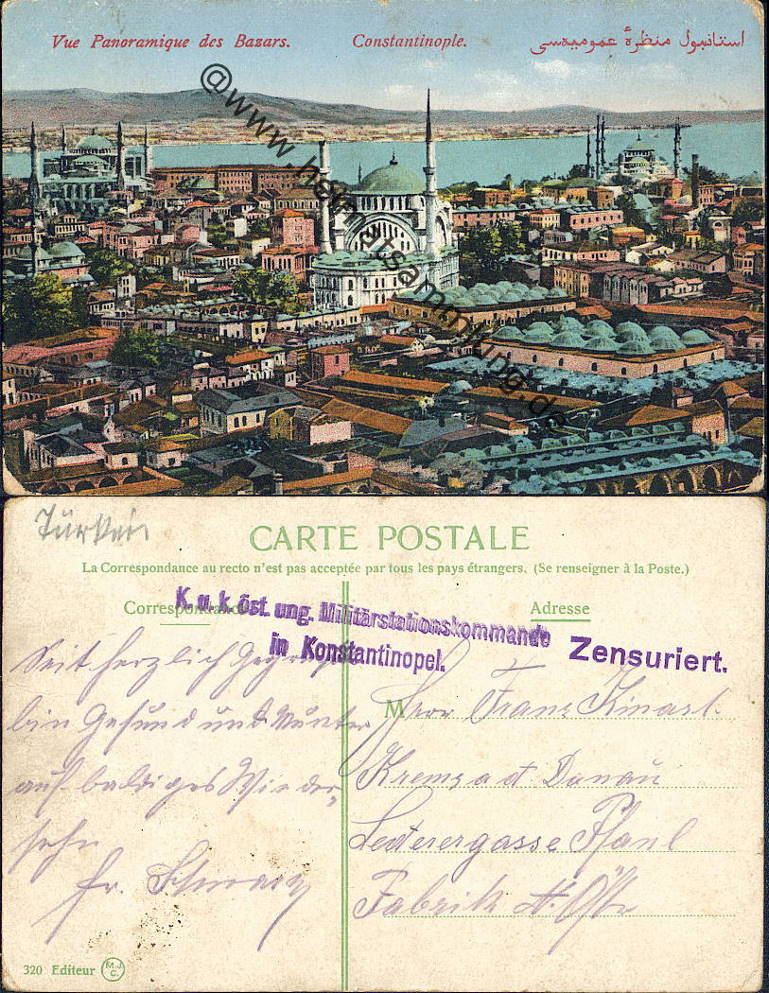 Vue Panoramique des Bazars. Constantinople. استانبول منظرهٔ عموميه‌سى
@www.heimatsammlung.de
Türkei
CARTE POSTALE
La Correspondance au recto n'est pas acceptée par tous les pays étrangers. (Se renseigner à la Poste.)
Correspondance
Adresse
K. u. k. öst. ung. Militärstationskommando
in Konstantinopel.
Zensuriert.
Seit herzlich Gegrüßt
bin Gesund und Munter
auf baldiges Wieder„
sehn
Fr. Schwarz
M
Herr Franz Kinast.
Krems a d Donau
Lederergasse
Fabrik N. Östr
320 Editeur M.J.C.